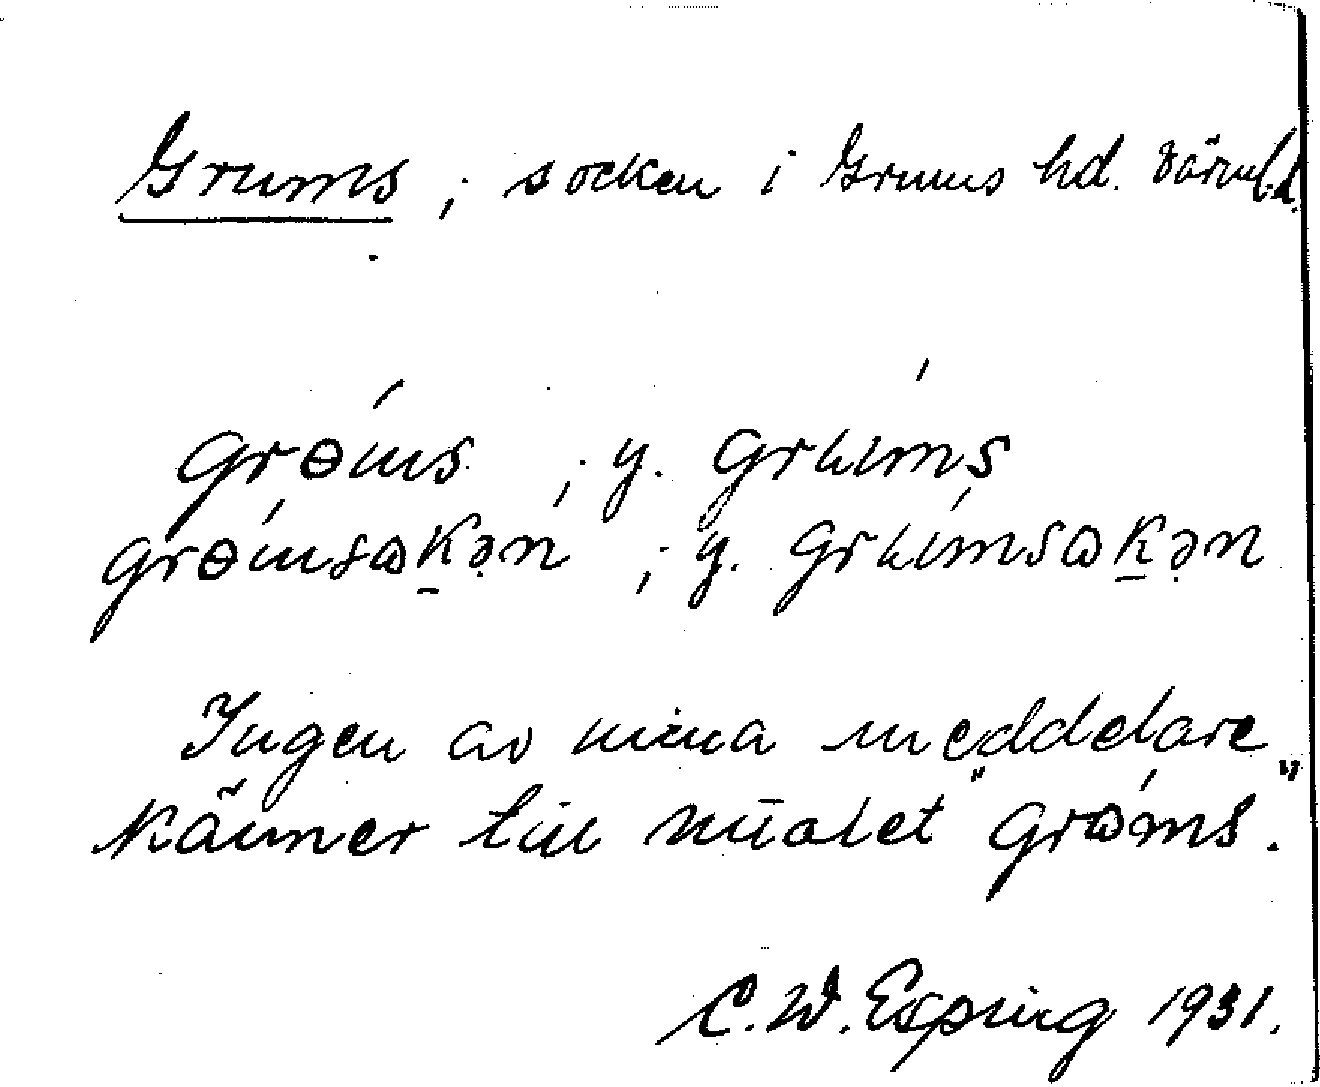 Grums, socken i Grums hd. Värmld.
grɵ́ms, y. grúms
grɵ́msɷḵən, y. grúmsɷḵən
Ingen av mina meddelare
känner till uttalet "grɷ́ms".
C. W. Esping 1931.